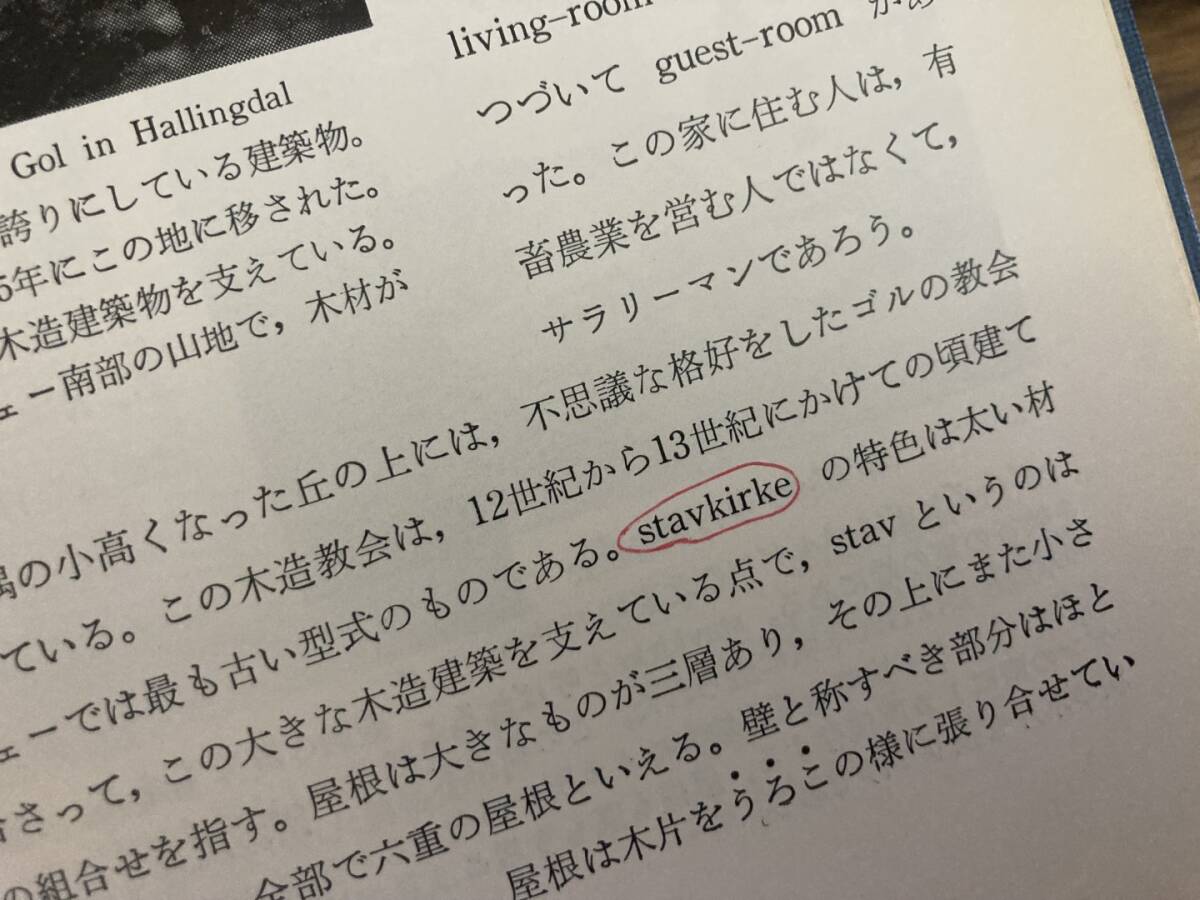 Gol in Hallingdal
誇りにしている建築物。
5年にこの地に移された。
木造建築物を支えている。
ェー南部の山地で，木材が
living-room
つづいて guest-room があ
った。この家に住む人は，有
畜農業を営む人ではなくて，
サラリーマンであろう。
の小高くなった丘の上には，不思議な格好をしたゴルの教会
ている。この木造教会は，12世紀から13世紀にかけての頃建て
ェーでは最も古い型式のものである。stavkirke の特色は太い材
さって，この大きな木造建築を支えている点で，stav というのは
の組合せを指す。屋根は大きなものが三層あり，その上にまた小さ
全部で六重の屋根といえる。壁と称すべき部分はほと
屋根は木片をうろこの様に張り合せてい